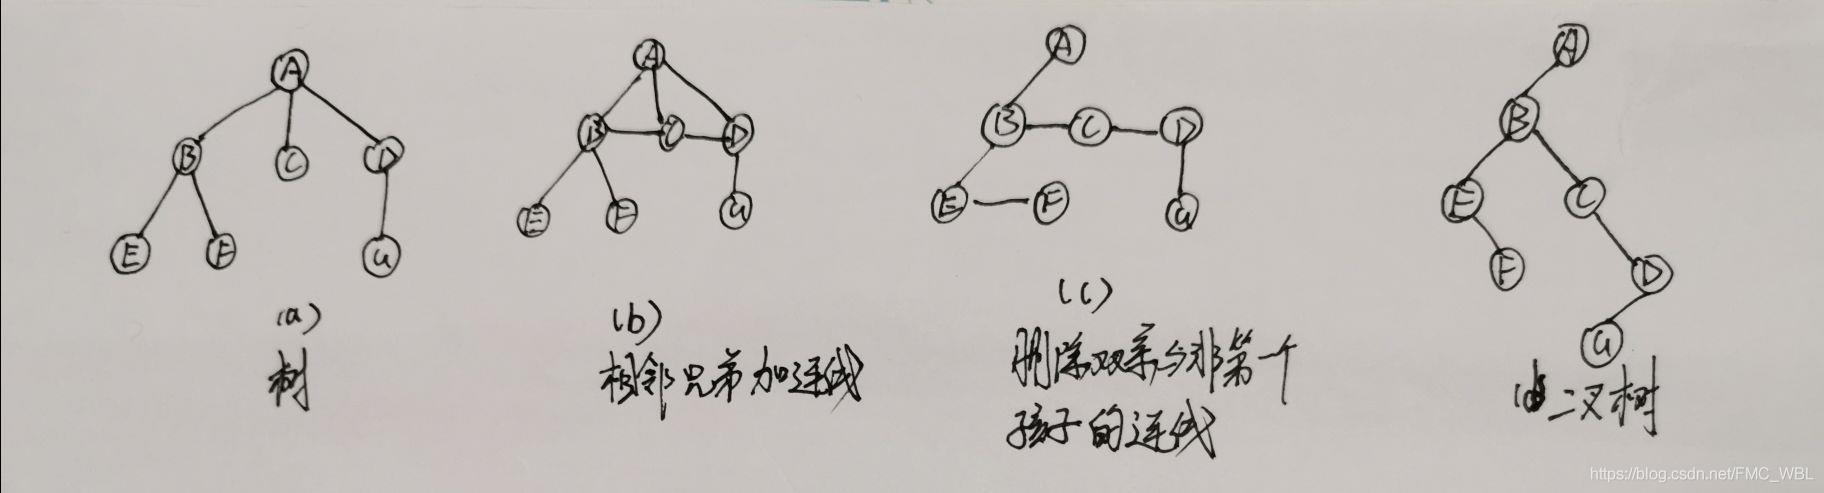 A
B C D
E F G
(a)
树
A
B C D
E F G
(b)
相邻兄弟加连线
A
B C D
E F G
(c)
删除双亲与非第一个
孩子的连线
A
B
E C
F D
G
(d) 二叉树
https://blog.csdn.net/FMC_WBL